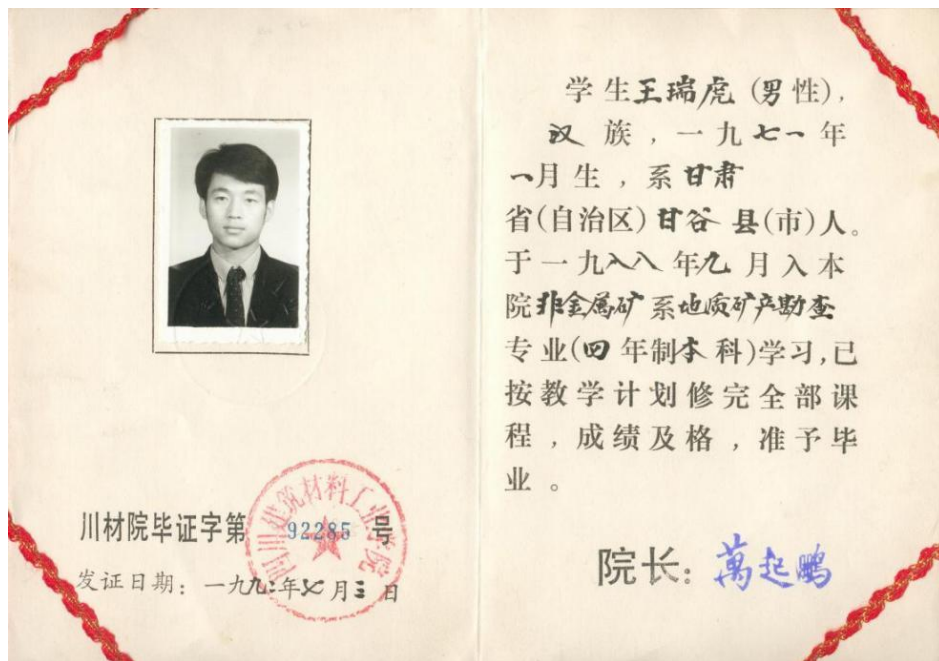 四川建筑材料工业学院
川材院毕证字第 92285 号
发证日期：一九九二年七月三日
学生王瑞虎(男性)，
汉族，一九七一年
一月生，系甘肃
省(自治区)甘谷县(市)人。
于一九八八年九月入本
院非金属矿系地质矿产勘查
专业(四年制本科)学习，已
按教学计划修完全部课
程，成绩及格，准予毕
业。
院长：萬起鹏